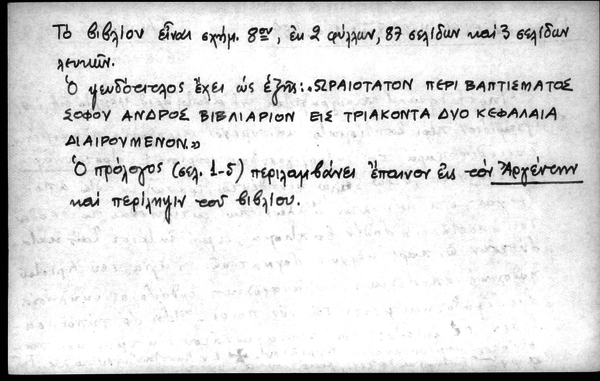 Τὸ βιβλίον εἶναι σχήμ. 8ον, ἐκ 2 φύλλων, 87 σελίδων καὶ 3 σελίδων
λευκῶν.
Ὁ ψευδότιτλος ἔχει ὡς ἑξῆς: «ΩΡΑΙΟΤΑΤΟΝ ΠΕΡΙ ΒΑΠΤΙΣΜΑΤΟΣ
ΣΟΦΟΥ ΑΝΔΡΟΣ ΒΙΒΛΙΑΡΙΟΝ ΕΙΣ ΤΡΙΑΚΟΝΤΑ ΔΥΟ ΚΕΦΑΛΑΙΑ
ΔΙΑΙΡΟΥΜΕΝΟΝ.»
Ὁ πρόλογος (σελ. 1-5) περιλαμβάνει ἔπαινον εἰς τὸν Ἀργέντην
καὶ περίληψιν τοῦ βιβλίου.